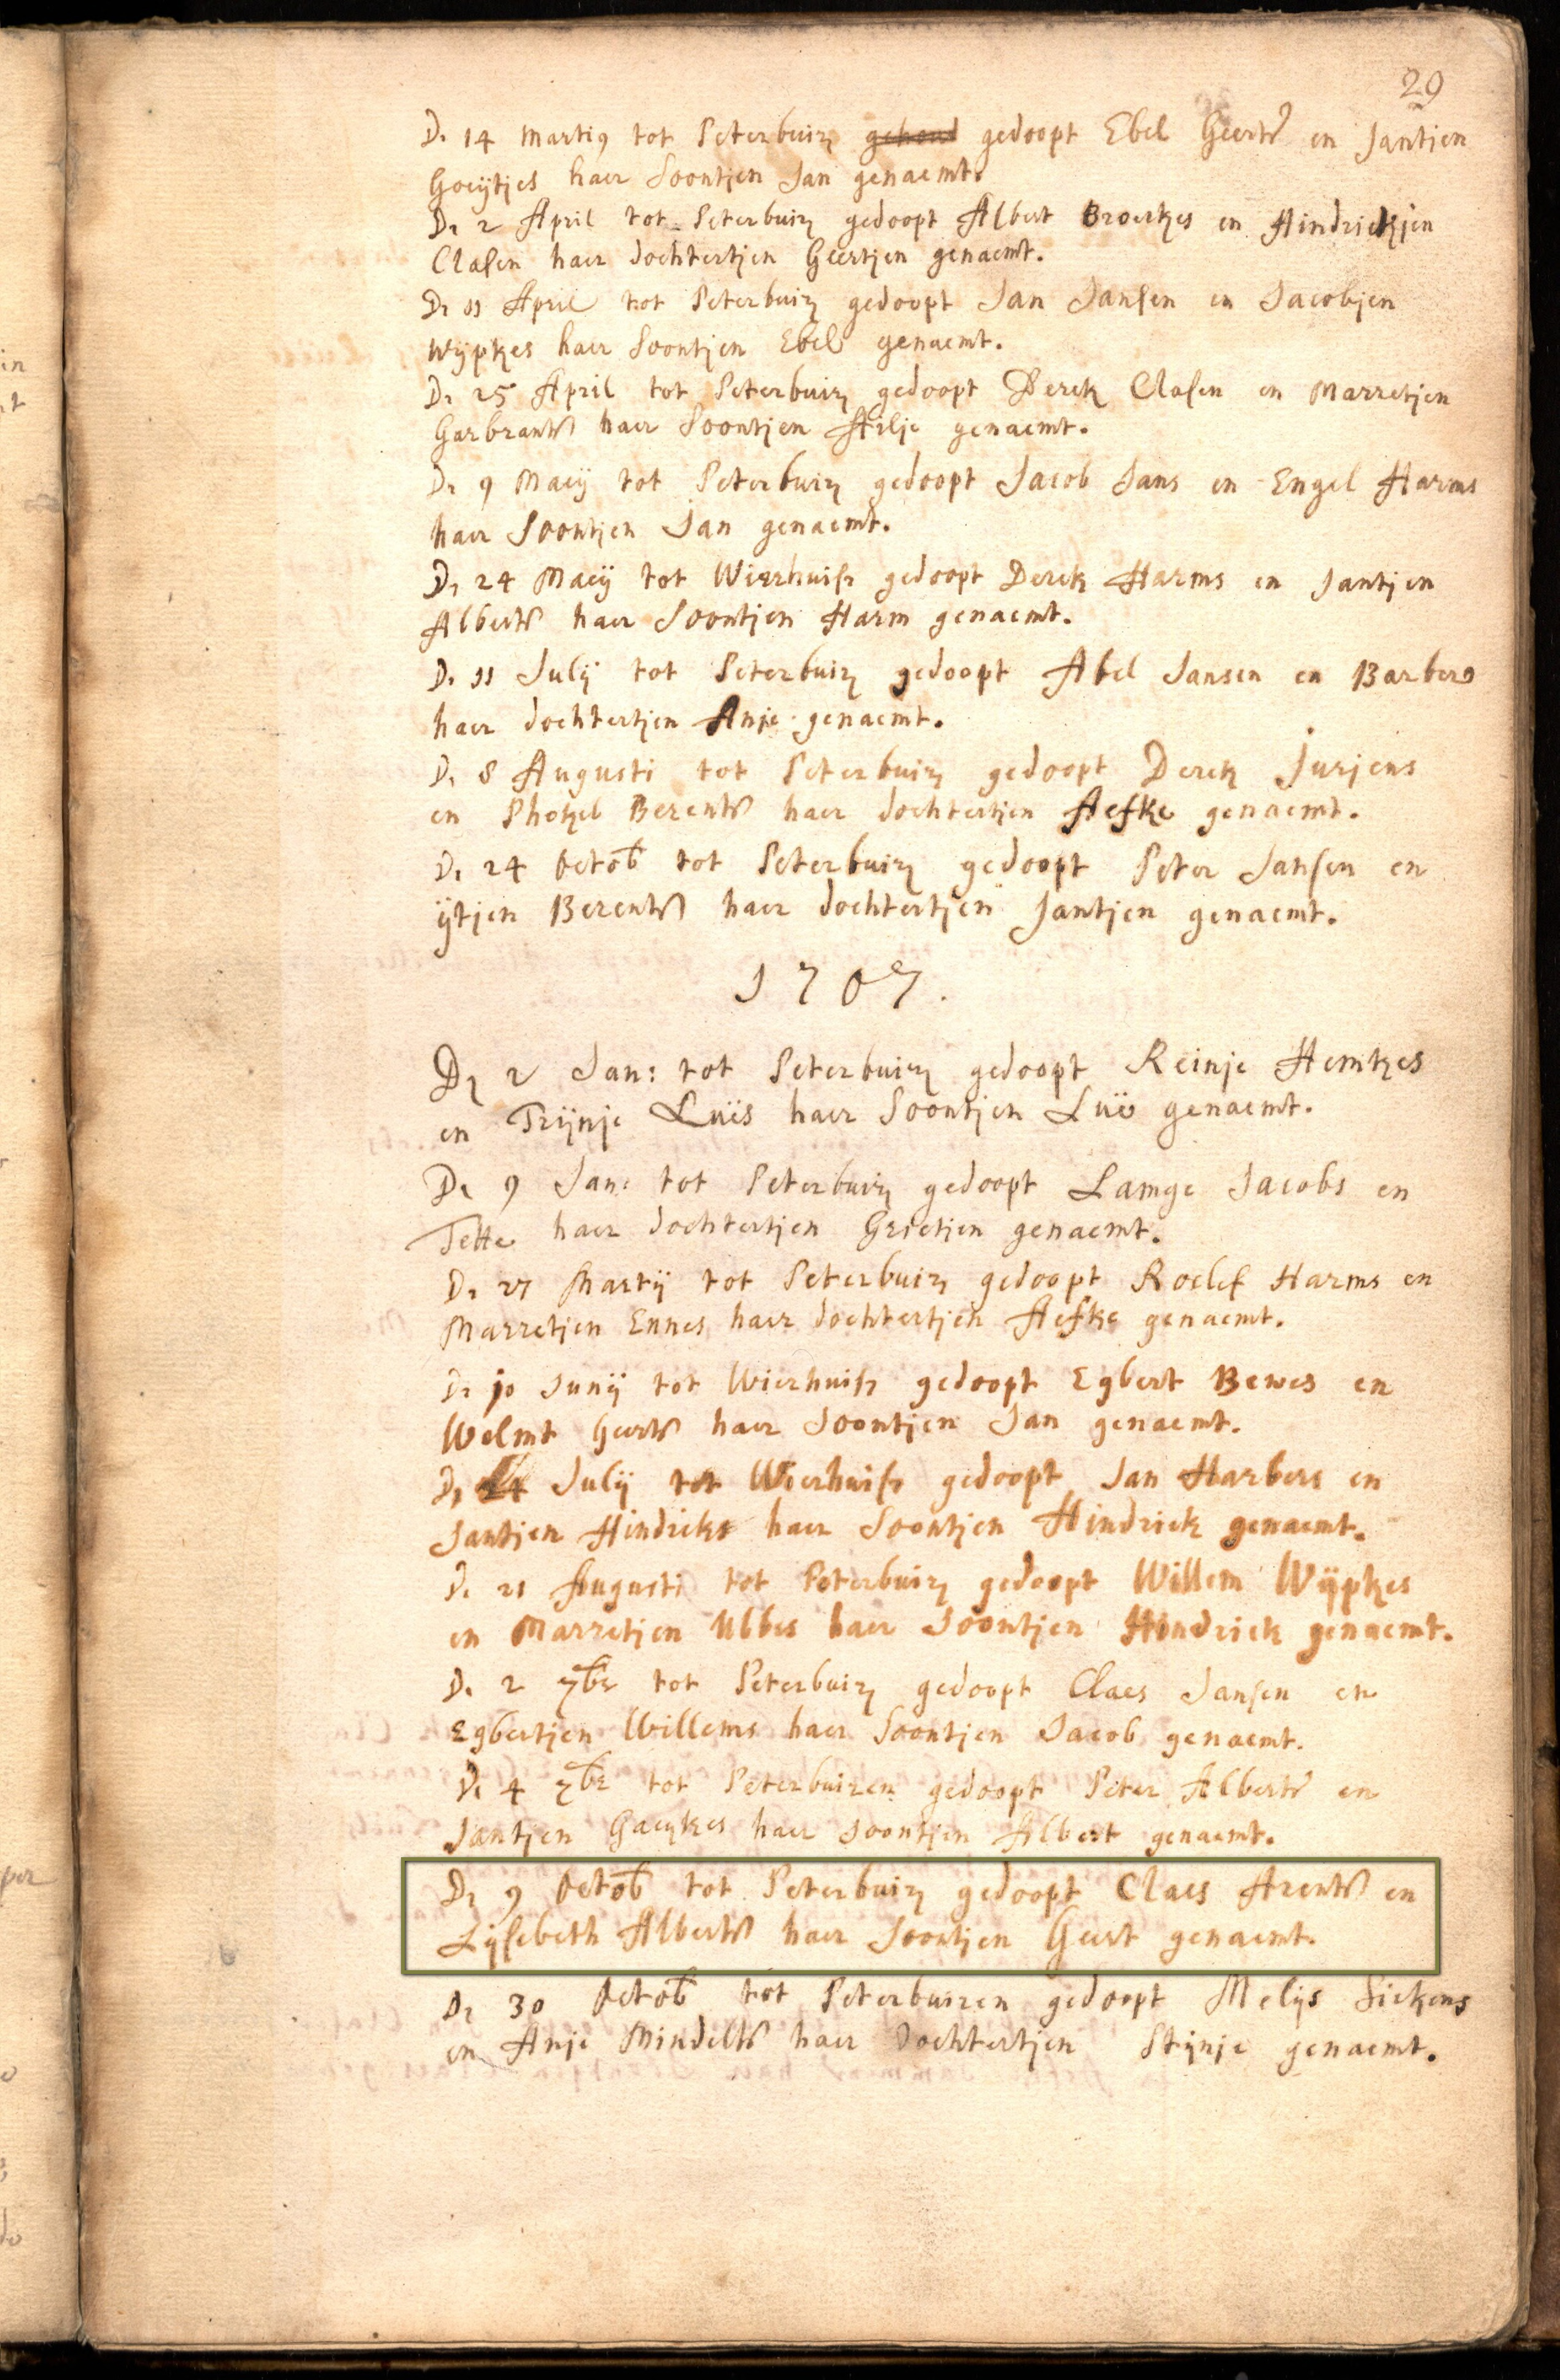 29
D. 14 Martig tot Peterbuirn gehoud gedoopt Ebel Geerts en Jantjen
Goeijtjes haer Soontjen Jan genaemt.
Dn 2 April tot Peterbuirn gedoopt Albert Broerkes en Hindrickjen
Clasen haer dochtertjen Geertjen genaemt.
Dn 11 April tot Peterbuirn gedoopt Jan Jansen en Jacobjen
Wijpkes haer Soontjen Ebel genaemt.
Dn 25 April tot Peterbuirn gedoopt Derck Clasen en Marretjen
Garbrants haer Soontjen Hilje genaemt.
Dn 9 Maij tot Peterbuirn gedoopt Jacob Jans en Engel Harms
haer Soontjen Jan genaemt.
Dn 24 Maij tot Wierhuisn gedoopt Derck Harms en Jantjen
Alberts haer Soontjen Harm genaemt.
D. 11 Julij tot Peterbuirn gedoopt Abel Jansen en Barber
haer dochtertjen Anje genaemt.
D. 8 Augusti tot Peterbuirn gedoopt Derck Jurjens
en Berents haer dochtertjen Aefke genaemt.
D. 24 Octob tot Peterbuirn gedoopt Peter Jansen en
ijtjen Berents haer dochtertjen Jantjen genaemt.
1707.
Dn 2 Jan: tot Peterbuirn gedoopt Reinje Hemkes
en Trijnje Luïs haer Soontjen Luë genaemt.
Dn 9 Jan: tot Peterbuirn gedoopt Lamge Jacobs en
Tette haer dochtertjen Grietjen genaemt.
Dn 27 Martij tot Peterbuirn gedoopt Roelef Harms en
Marretjen Ennes haer dochtertjen Aefke genaemt.
Dn 10 Junij tot Wierhuisn gedoopt Egbert Bewes en
Welmt Geerts haer Soontjen Jan genaemt.
Dn 24 Julij tot Wierhuisn gedoopt Jan Harbers en
Jantjen Hindricks haer Soontjen Hindrick genaemt.
D. 21 Augusti tot Peterbuirn gedoopt Willem Wijpkes
en Marretjen Ubbes haer Soontjen Hindrick genaemt.
D. 2 7br tot Peterbuirn gedoopt Claes Jansen en
Egbertjen Willems haer Soontjen Jacob genaemt.
D. 4 7br tot Peterbuiren gedoopt Peter Alberts en
Jantjen Gaeijkes haer Soontjen Albert genaemt.
Dn 9 Octob tot Peterbuirn gedoopt Claes Arents en
Lijsebeth Alberts haer Soontjen Geert genaemt.
Dn 30 Octob tot Peterbuiren gedoopt Melijs Sickens
en Anje Mindelts haer Dochtertjen Stijnje genaemt.